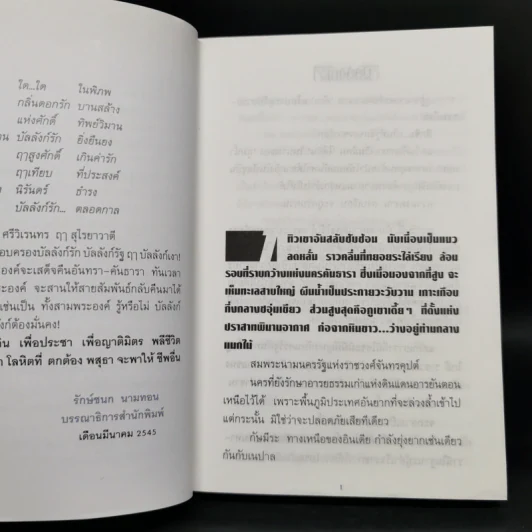 ใด...ใด ในพิภพ
กลิ่นดอกรัก บานสล้าง
แห่งศักดิ์ ทิพย์วิมาน
บัลลังก์รัก ยิ่งยืนยง
ฤๅสูงศักดิ์ เกินค่ารัก
ฤๅเทียบ ที่ประสงค์
นิรันดร์ ธำรง
บัลลังก์รัก... ตลอดกาล
ศรีวิเรนทร ฤๅ สุไรยาวาตี
อบครองบัลลังก์รัก บัลลังก์รัฐ ฤๅ บัลลังก์เงา!
องค์จะเสด็จคืนอันทรา-คันธารา ทันเวลา
จะสานให้สายสัมพันธ์กลับคืนมาได้
เช่นเป็น ทั้งสามพระองค์ รู้หรือไม่ บัลลังก์
ก์ต้องมั่นคง!
เพื่อประชา เพื่อญาติมิตร พลีชีวิต
โลหิตที่ ตกต้อง พสุธา จะพาให้ ชีพชื่น
รักษ์ชนก นามทอน
บรรณาธิการสำนักพิมพ์
เดือนมีนาคม 2545
ทิวเขาอันสลับซับซ้อน นับเนื่องเป็นแนว
ลดหลั่น ราวคลื่นที่ทยอยระไล่เรียง ล้อม
รอบที่ราบกว้างแห่งนครคันธารา ซึ่งเมื่อมองจากที่สูง จะ
เห็นทะเลสาบใหญ่ ผืนน้ำเป็นประกายวะวับวาม เกาะเกือบ
กึ่งกลางชอุ่มเขียว ส่วนสูงสุดคือภูเขาเตี้ยๆ ที่ตั้งแห่ง
ปราสาทพิมานอากาศ ก่อจากหินขาว...ว้างอยู่ท่ามกลาง
แมกไม้
สมพระนามนครรัฐแห่งราชวงศ์จันทรคุปต์
นครที่ยังรักษาอารยธรรมเก่าแห่งดินแดนอารยันตอน
เหนือไว้ได้ เพราะพื้นภูมิประเทศอันยากที่จะล่วงล้ำเข้าไป
แต่กระนั้น มิใช่ว่าจะปลอดภัยเสียทีเดียว
กัษมีระ ทางเหนือของอินเดีย กำลังยุ่งยากเช่นเดียว
กันกับเนปาล
1